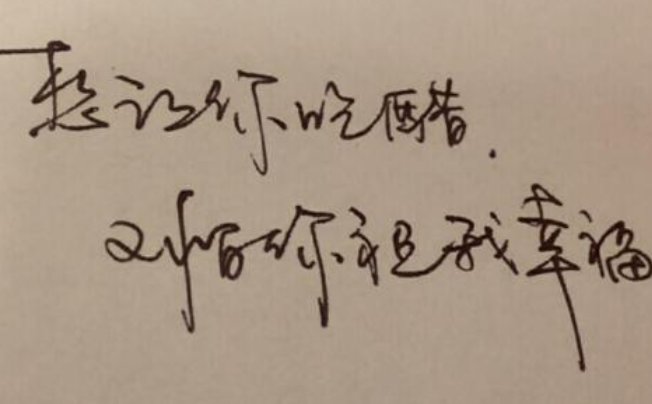 想让你吃醋.
又怕你祝我幸福